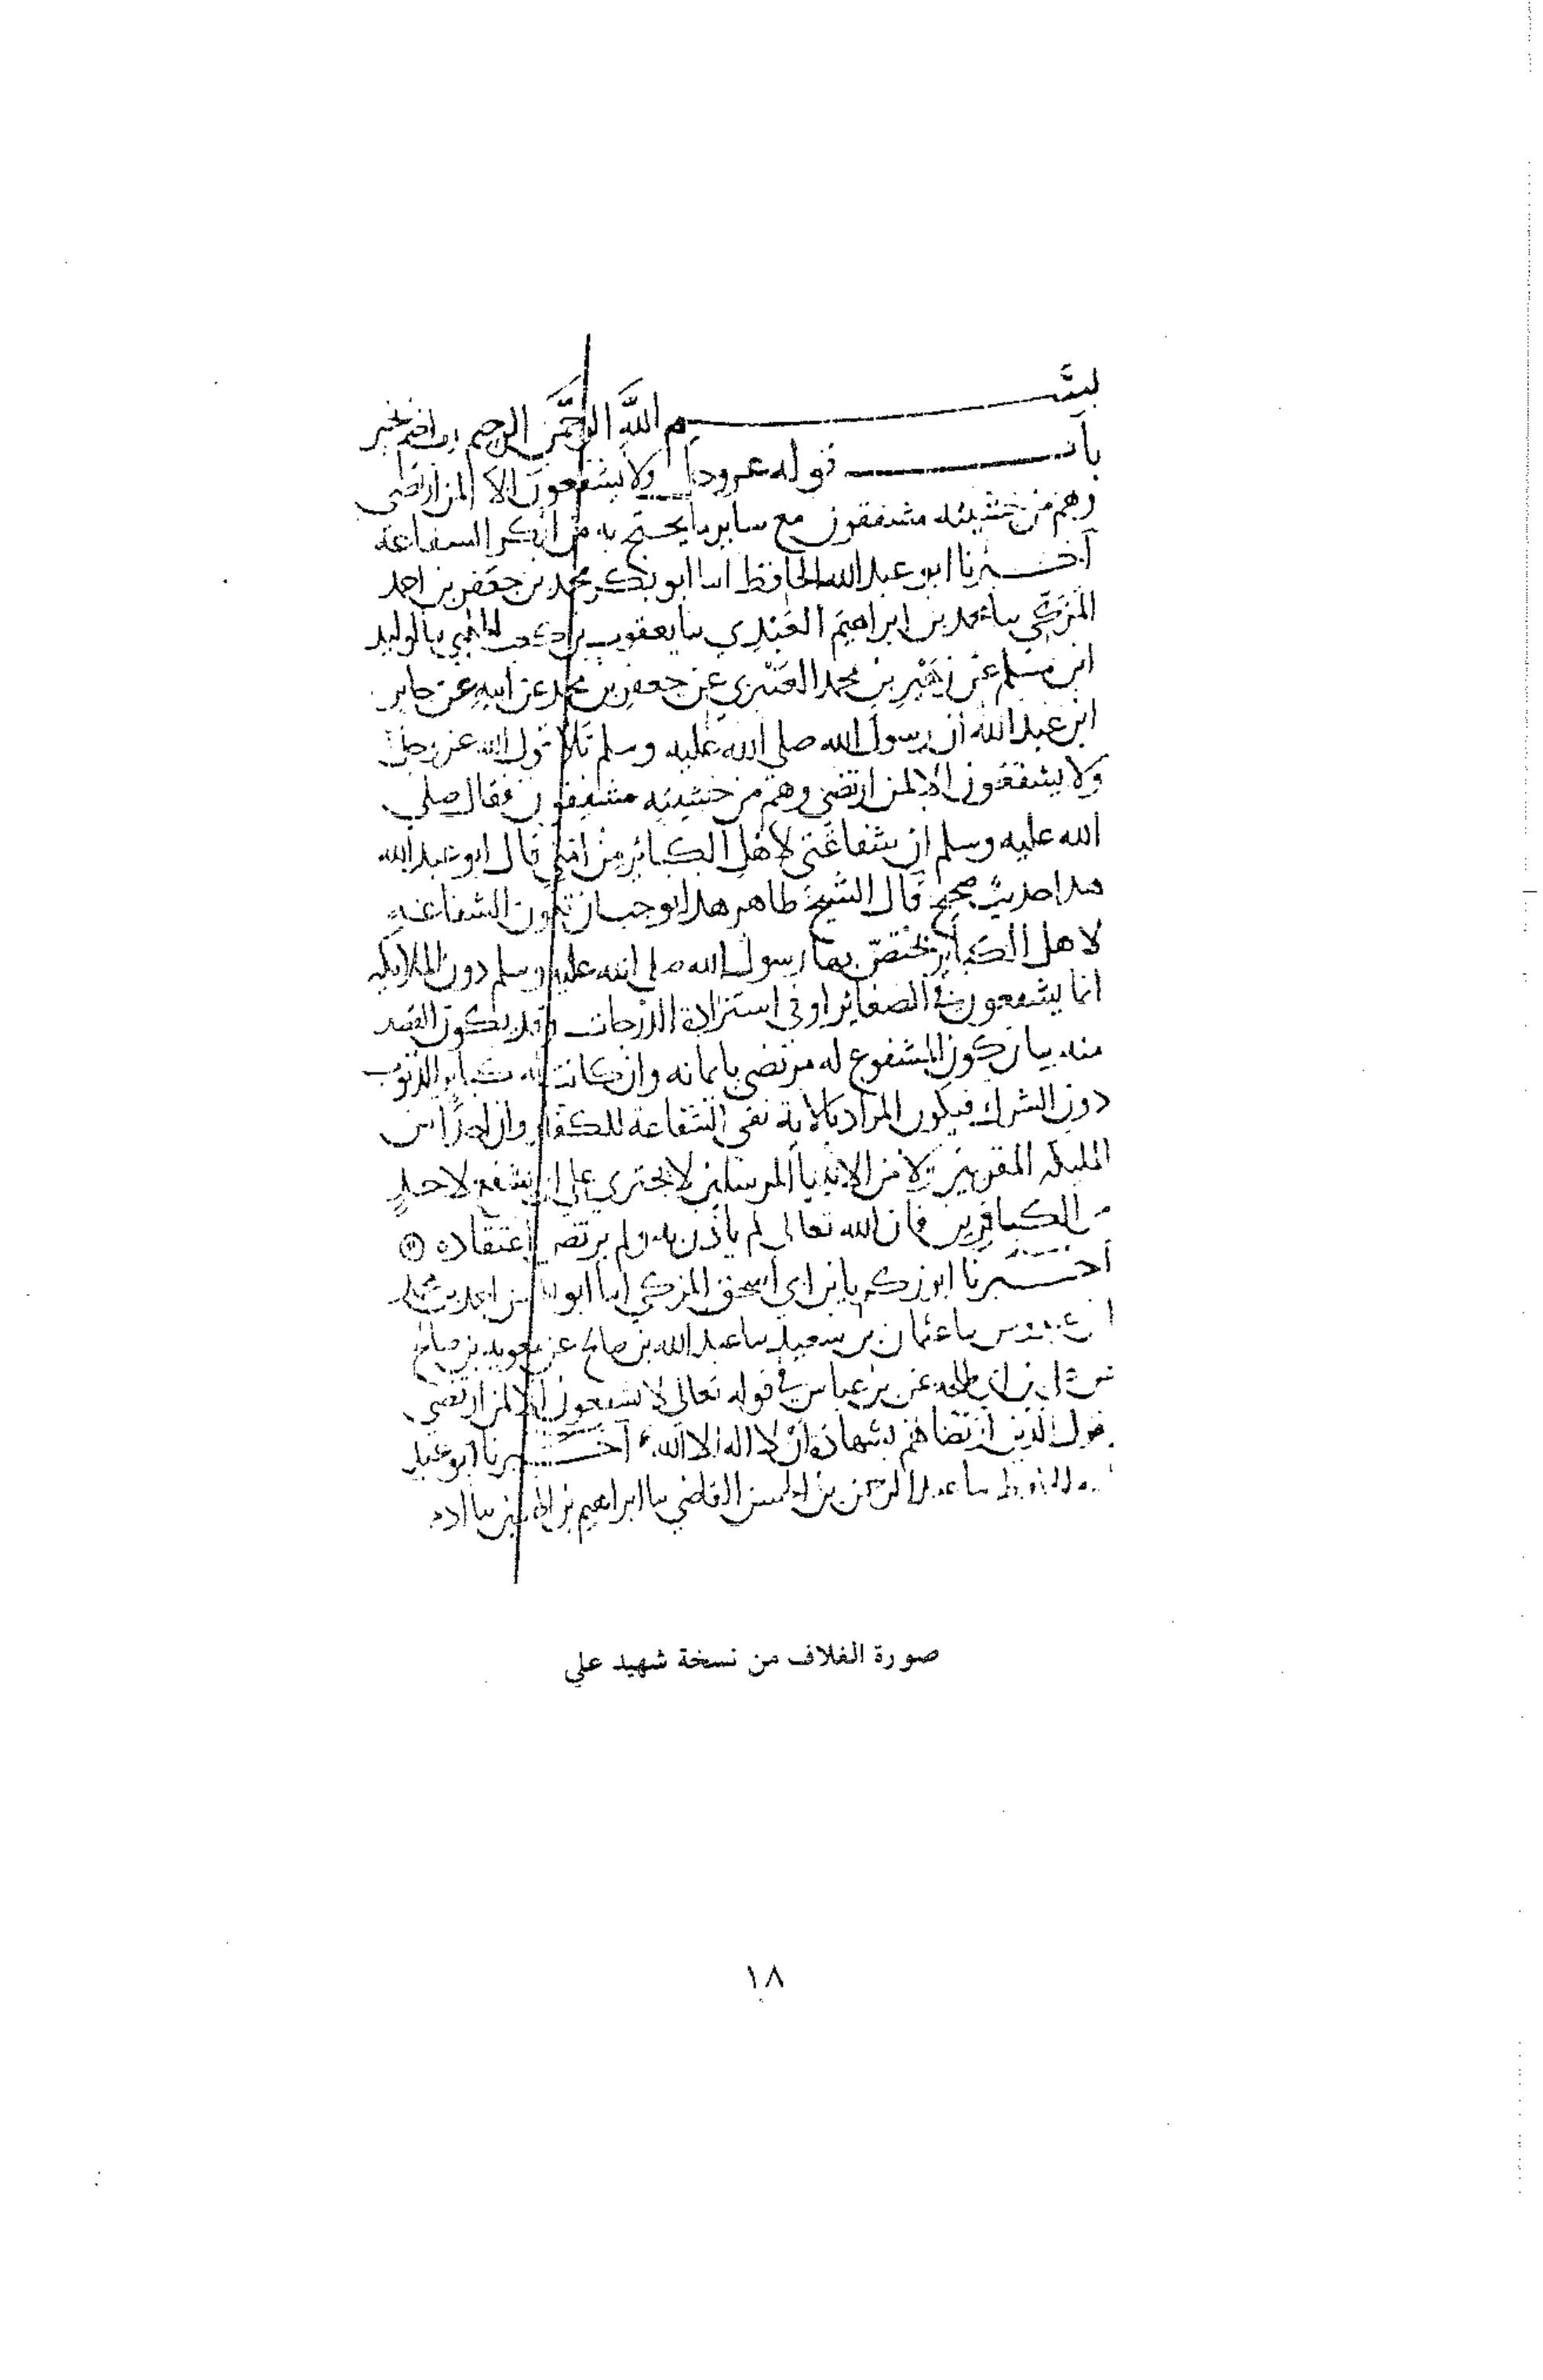 بسم الله الرحمن الرحيم رب اختم بخير
باب قوله عز وجل ولا يشفعون الا لمن ارتضى
وهم من خشيته مشفقون مع ساير ما يحتج به من انكر الشفاعة
أخبرنا ابو عبد الله الحافظ انبا ابو بكر محمد بن جعفر بن احمد
المزكي ثنا محمد بن ابراهيم العبدي ثنا يعقوب بن كعب الحلبي ثنا الوليد
ابن مسلم عن زهير بن محمد العنبري عن جعفر بن محمد عن ابيه عن جابر
ابن عبد الله أن رسول الله صلى الله عليه وسلم تلا قول الله عز وجل
ولا يشفعون الا لمن ارتضى وهم من خشيته مشفقون فقال صلى
الله عليه وسلم إن شفاعتي لأهل الكبائر من امتي قال ابو عبد الله
هذا حديث صحيح قال الشيخ ظاهر هذا يوجب ان تكون الشفاعة
لاهل الكبائر يختص بها رسول الله صلى الله عليه وسلم دون الملايكه
انما يشفعون في الصغائر او في استزادة الدرجات وقد يكون القصد
منه بيان كون المشفوع له مرتضى بايمانه وان كانت له كباير الذنوب
دون الشرك فيكون المراد بالاية نفى الشفاعة للكفار وان احدا من
الملئكه المقربين ولا من الانبيا المرسلين لا يجترى على ان يشفع لاحد
من الكافرين فان الله تعالى لم ياذن به ولم يرتض اعتقاده
أخبرنا ابو زكريا بن ابي اسحق المزكي انبا ابو الحسن احمد بن محمد
ابن عبدوس ثنا عثمان بن سعيد ثنا عبد الله بن صالح عن معويه بن صالح
عن علي بن ابي طلحه عن بن عباس في قوله تعالى لا يشفعون الا لمن ارتضى
يقول الذين ارتضاهم بشهادة أن لا اله الا الله أخبرنا ابو عبد
الله الحافظ ثنا عبد الرحمن بن الحسن القاضي ثنا ابراهيم بن الحسين ثنا ادم
صورة الغلاف من نسخة شهيد علي
١٨